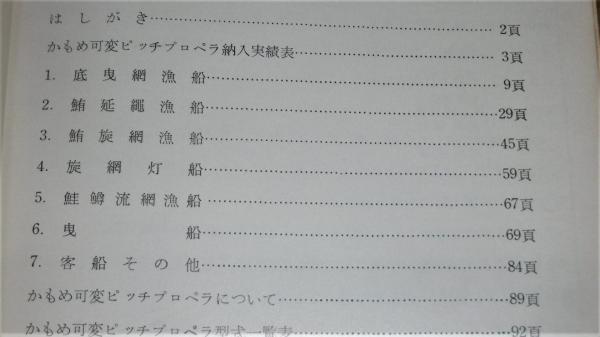 はしがき……2頁
かもめ可変ピッチプロペラ納入実績表……3頁
1. 底曳網漁船……9頁
2. 鮪延縄漁船……29頁
3. 鮪旋網漁船……45頁
4. 旋網灯船……59頁
5. 鮭鱒流網漁船……67頁
6. 曳船……69頁
7. 客船その他……84頁
かもめ可変ピッチプロペラについて……89頁
かもめ可変ピッチプロペラ型式一覧表……92頁